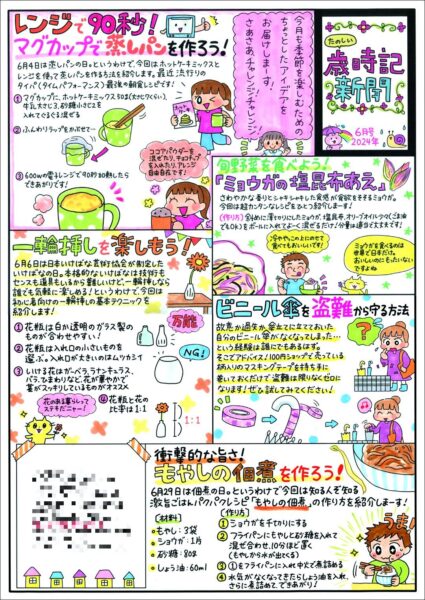 たのしい
歳時記
新聞
6月号
2024年
今月も季節を楽しむための
ちょっとしたアイデアを
お届けします。
さぁさぁ、チャレンジ・チャレンジ!
レンジで90秒!
マグカップで蒸しパンを作ろう!
6月4日は蒸しパンの日。というわけで、今回はホットケーキミックスと
レンジを使って蒸しパンを作る方法を紹介します。最近、流行りの
タイパ(タイムパフォーマンス)最強の朝食レシピです!
①マグカップに、ホットケーキミックス50g(大さじ
牛乳大さじ3、砂糖小さじ2を
入れてぐるぐる混ぜる
②ふんわりラップをかぶせて…
③600Wの電子レンジで90秒加熱したら
できあがりです!
ココアパウダーを
混ぜたり、チョコチップ
を入れたり、アレンジ
自由自在です!
旬野菜を食べよう!
「ミョウガの塩昆布あえ」
さわやかな香りとシャキシャキした食感が食欲をそそるミョウガ。
今回は超カンタンなレシピをひとつ紹介しまーす!
(作り方) 斜めに薄切りにしたミョウガ、塩昆布、オリーブオイル少々(ごま油
でもOK)をボールに入れてよーく混ぜるだけ!分量は適当で大丈夫です!
冷ややっこの上にのせて
食べてもおいしいです!
ミョウガを食べるのは
世界で日本だけ。
おいしいのにもったいない
ですよね
一輪挿しを楽しもう!
6月6日は日本いけばな芸術協会が制定した
いけばなの日。本格的ないけばなは技術も
センスも道具もいるから難しいけど、一輪挿しなら
誰でも気軽に楽しめる!というわけで、今回は
初心者向けの一輪挿しの基本テクニックを
紹介します!
①花瓶は白か透明のガラス製の
ものが合わせやすい!
②花瓶は入れ口の小さいものを
選ぶ。入れ口が大きいのはムツカシイ
③いける花はガーベラ、ラナンキュラス、
バラ、ひまわりなど、花が華やかで
茎がスッキリしているものがオススメ
④花瓶と花の
比率は1:1
万能
NG!
1:1
花のある暮らしって
ステキだニャー!
ビニール傘を盗難から守る方法
故意か過失か、傘立てに立てておいた
自分のビニール傘がなくなってしまった…
という経験は誰にでもあるはず。
そこでアドバイス!100円ショップで売っている
柄入りのマスキングテープを持ち手に
巻いておくだけで盗難は限りなくゼロに
なります!ぜひ試してみてください!
衝撃的な旨さ!
もやしの佃煮を作ろう!
6月29日は佃煮の日。というわけで今回は知る人ぞ知る
激旨ごはんパクパクレシピ「もやしの佃煮」の作り方を紹介しまーす!
[材料]
もやし:2袋
ショウガ:1片
砂糖:80g
しょう油:60ml
[作り方]
①ショウガを千切りにする
②フライパンにもやしと砂糖を入れて
混ぜ合わせ、10分ほど置く
(もやしから水が出てくる)
③①をフライパンに入れ中火で煮詰める
④水気がなくなってきたらしょう油を入れ、
さらに煮詰めて、できあがり!
うまっ